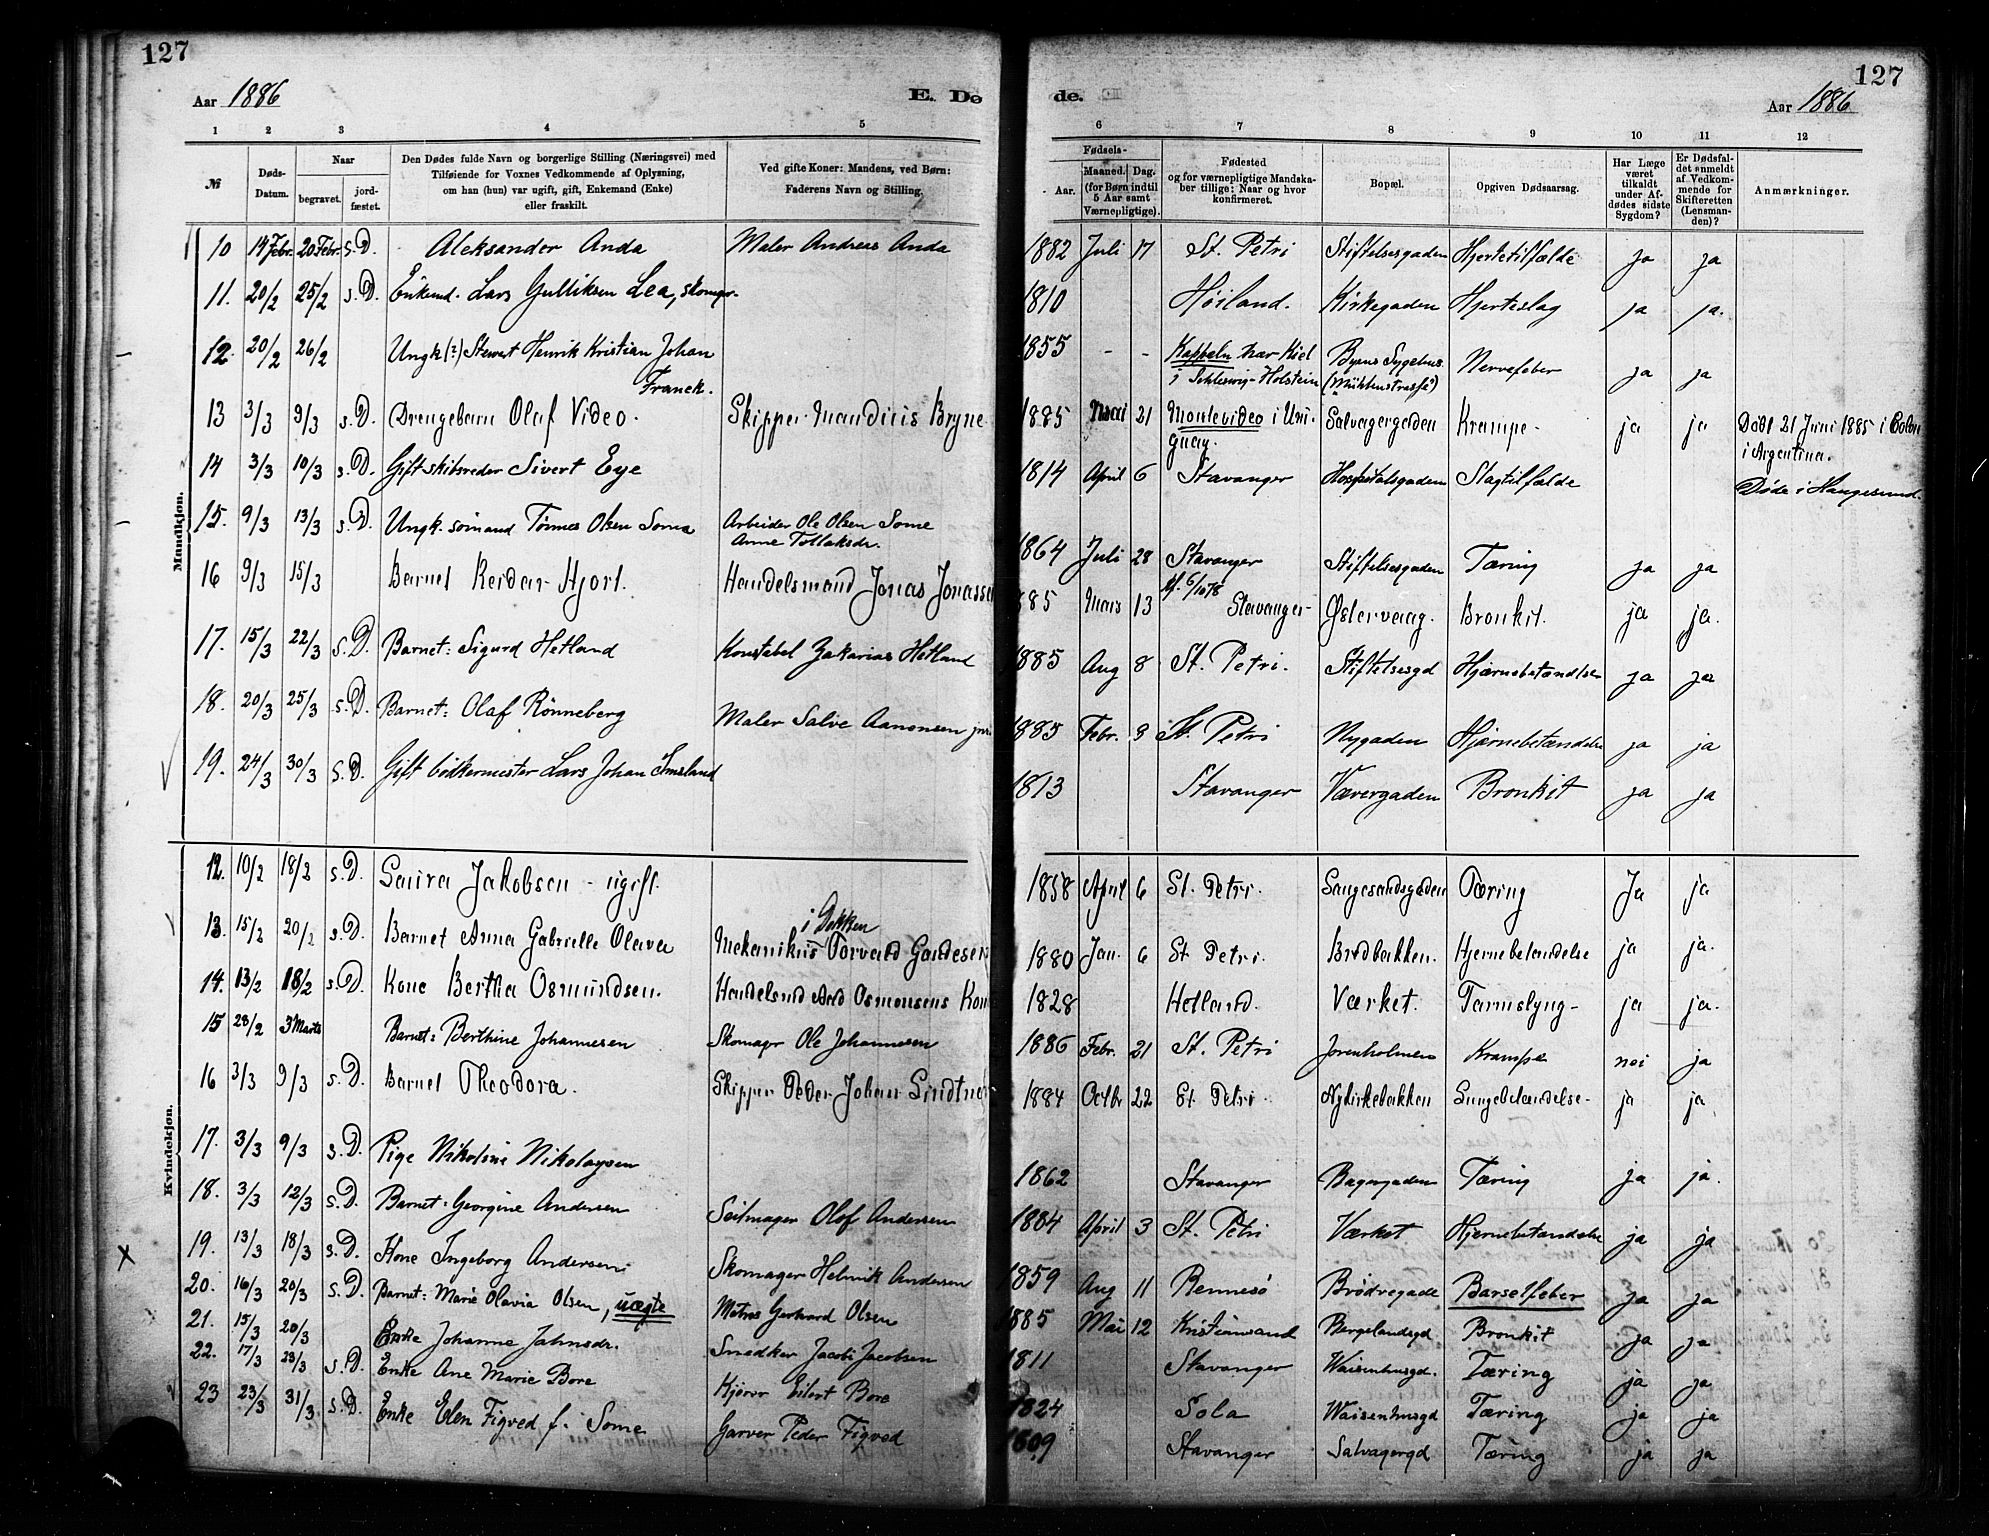 127
Aar 1886
E. Dø
1 2 3 4 5
№
Døds-Datum.
Naar
begravet.
jord-fæstet.
Den Dødes fulde Navn og borgerlige Stilling (Næringsvei) med
Tilføiende for Voxnes Vedkommende af Oplysning,
om han (hun) var ugift, gift, Enkemand (Enke)
eller fraskilt.
Ved gifte Koner: Mandens, ved Børn:
Faderens Navn og Stilling.
Mandkjøn.
10 14 Febr. 20 Febr. s.D. Aleksander Anda Maler Andreas Anda
11. 20/2 25/2 s.D. Enkemd. Lars Gulliksen Lea, skomgr.
12. 20/2 26/2 Ungk (?) Stewert Henrik Kristian Johan
Franck.
13 3/3 9/3 s.D. Drengebarn Olaf Video. Skipper Mauditis Bryne
14 3/3 10/3 s.D. Gift skibsreder Sivert Eye
15. 9/3 13/3 s.D. Ungk. sømand Tønnes Olsen Some Arbeider Ole Olsen Some
Anne Tollaksdr.
16 9/3 15/3 Barnet Reidar Hjort. Handelsmand Jonas Jonasse
17. 15/3 22/3 s.D. Barnet: Sigurd Hetland Konstabel Zakarias Hetland
18. 20/3 25/3 s.D. Barnet: Olaf Rönneberg Maler Salve Aanensen jun
19. 24/3 30/3 s.D. Gift bødkermester Lars Johan Imsland
Kvindekjøn.
12. 10/2 18/2 s.D. Laura Jakobsen - ugift.
i Dokken
13. 15/2 20/2 s.D. Barnet Anna Gabrielle Olava Mekanikus Torvald Gaudesen
14. 13/2 18/2 s.D. Kone Bertha Osmundsen. Handelsmd Aad Osmonsens Kon
15 28/2 3 Marts Barnet: Berthine Johannesen Skomagr Ole Johannesen
16 3/3 9/3 s.D. Barnet Theodora. Skipper Peder Johan Sindtne
17. 3/3 9/3 s.D. Pige Nikoline Nikolaysen
18. 3/3 12/3 s.D. Barnet: Georgine Andersen Seilmager Olof Andersen
19. 13/3 18/3 s.D. Kone Ingeborg Andersen Skomager Helmik Andersen
20. 16/3 20/3 s.D. Barnet: Marie Olavia Olsen, uægte Matros Gerhard Olsen
21. 15/3 20/3 Enke Johanne Jahnsdr. Snedker Jacob Jacobsen
22. 17/3 23/3 s.D. Enke Ane Marie Bore Kjører Eilert Bore
23 23/3 31/3 s.D. Enke Elen Figved f. Some Garver Peder Figved
127
de.
Aar 1886
6 7 8 9 10 11 12
Fødsels-
Aar.
Maaned. Dag.
(for Børn indtil
5 Aar samt
Værnepligtige).
Fødested
og for værnepligtige Mandska-
ber tillige: Naar og hvor
konfirmeret.
Bopæl.
Opgiven Dødsaarsag.
Har Læge
været
tilkaldt
under Af-
dødes sidste
Sygdom?
Er Dødsfal-
det anmeldt
af Vedkom-
mende for
Skifteretten
(Lensman-
den)?
Anmærkninger.
1882 Juli 17 St. Petri Stiftelsesgaden Hjertetilfælde ja ja
1810 Høiland. Kirkegaden Hjerteslag ja ja.
1855 - - Kappeln nær Kiel Byens Sygehus Nervefeber ja ja
i Schleswig-Holstein
1885 Mai 21 Montevideo i Uru- Salvagergaden Krampe - ja ja Døbt 21 Juni 1885 i Colon
guay. i Argentina.
1814 April 6 Stavanger Hospitalsgaden Slagtilfælde Døde i Haugesund.
1864 Juli 28 Stavanger Stiftelsesgaden Tæring ja ja
kf. 6/10 78
885 Mars 13 Stavanger- Østervaag. Bronkit. ja ja.
1885 Aug 8 St. Petri. Stiftelsesgd Hjærnebetændelse ja ja
1885 Febr. 3 St. Petri Nygaden Hjærnebetændelse ja ja
1813 Stavanger Værergaden Bronkit ja ja
1858 April 6 St. Petri. Langesandsgaden Tæring Ja ja
1880 Jan. 6 St. Petri. Bredbakken. Hjernebetændelse ja ja.
1828 Hetland. Værket. Tarmslyng- ja ja.
1886 Febr. 21 St. Petri Jorenholmen Krampe nei ja
1884 Octbr 22 St. Petri Nykirkebakken Lungebetændelse - ja ja
1862 Stavanger Bagergaden Tæring ja ja.
1884 April 3 St. Petri Værket Hjernebetændelse ja ja
1859 Aug 11 Rennesö Brødregade Barselfeber ja ja
1885 Mai 12 Kristiansand Bergelandsgd Bronkit ja ja
1811 Stavanger Waisenhusgd. Tæring ja ja
1824 Sola Waisenhusgd Tæring ja ja
1809 Stavanger Salvagergd Tæring ja ja